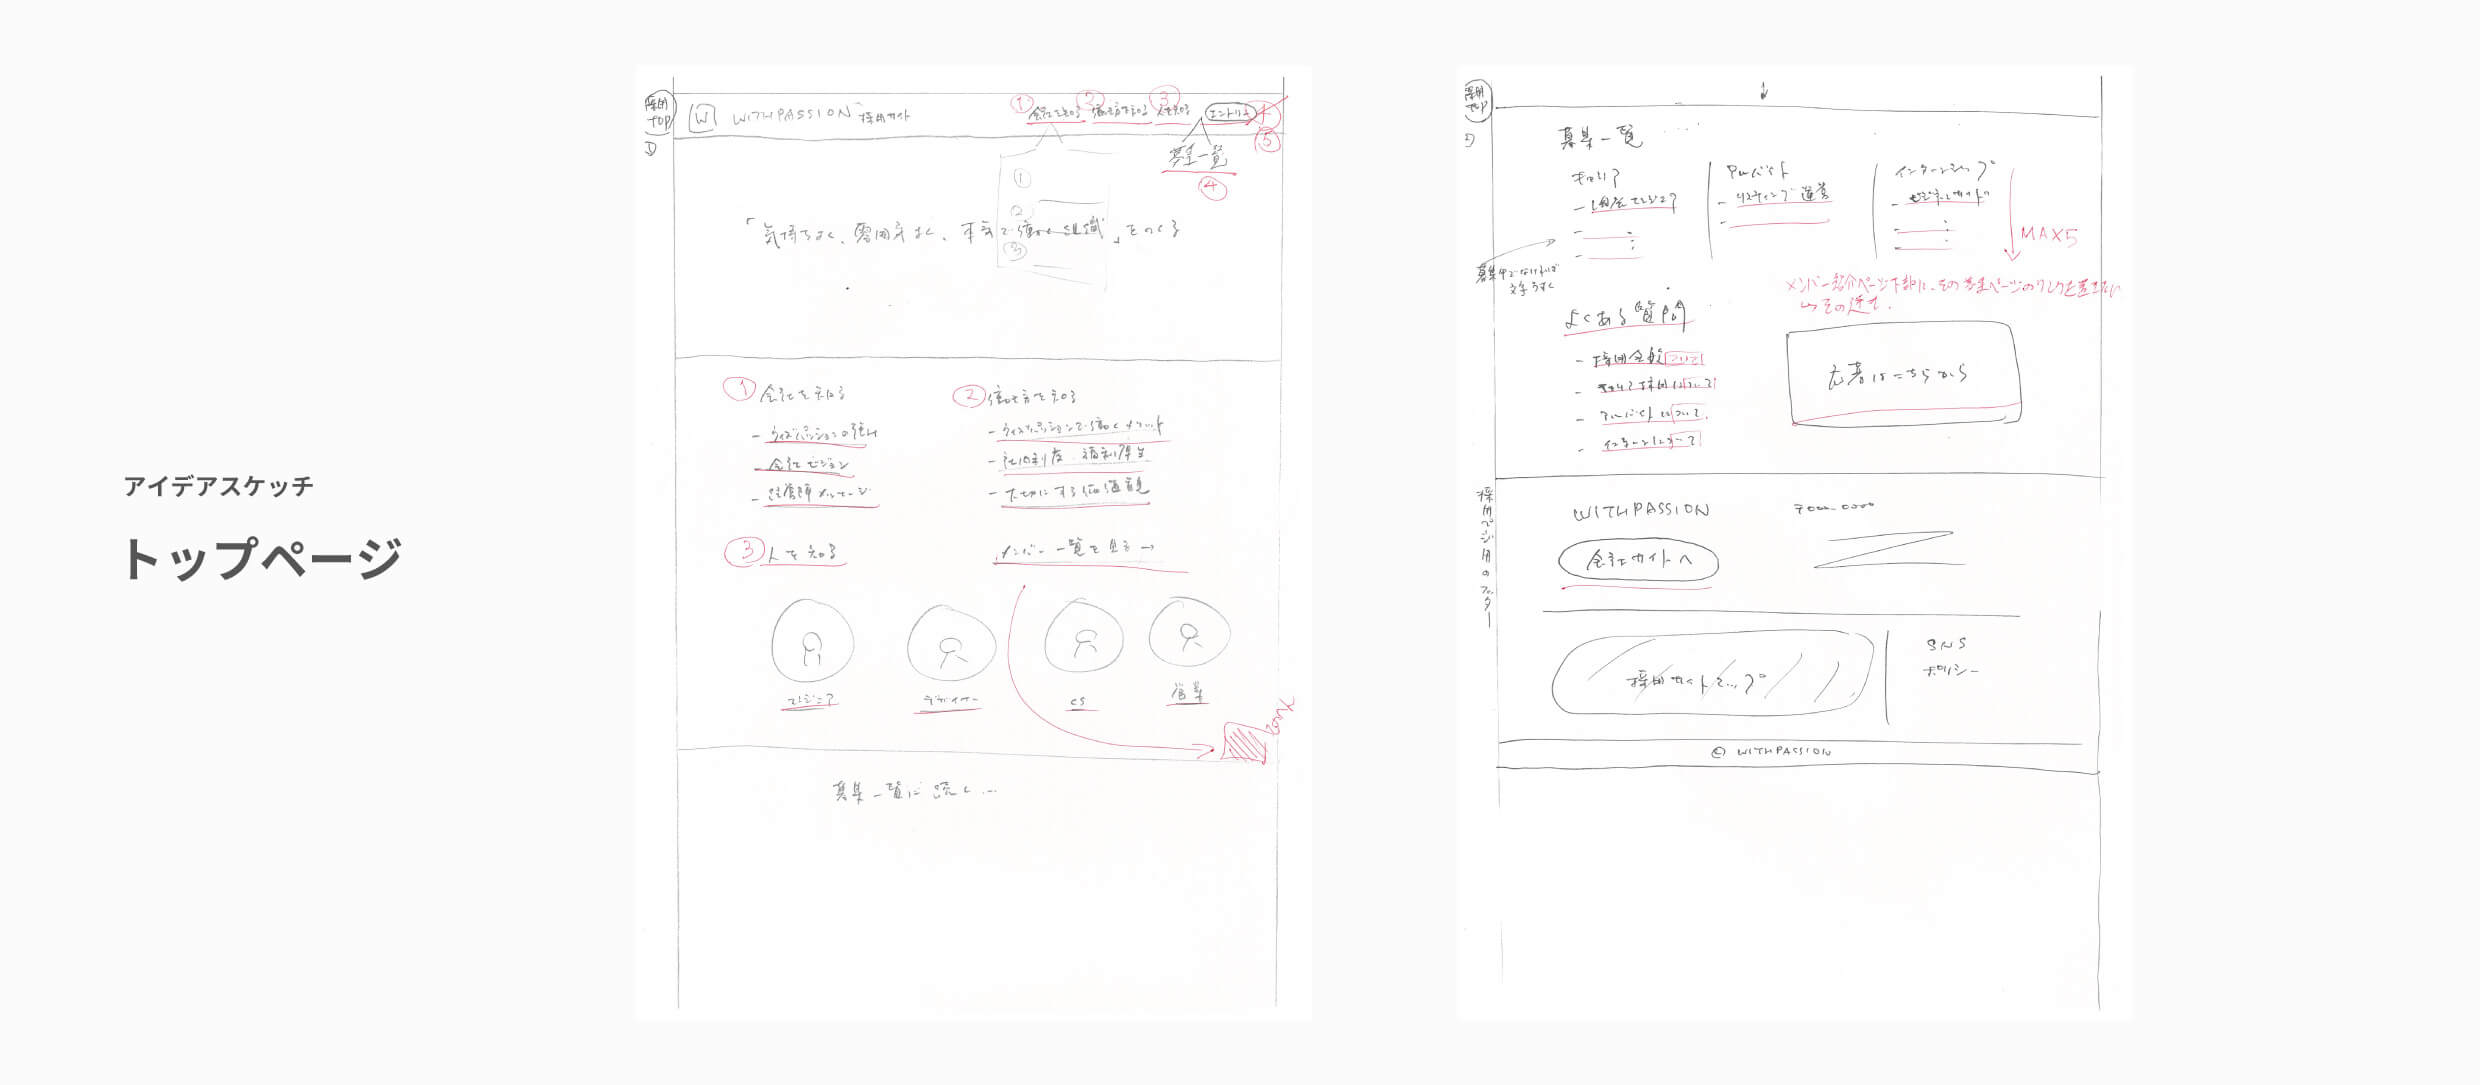 アイデアスケッチ
トップページ
採用
TOP
①
W
WITHPASSION
採用サイト
① ② ③
会社を知る 働き方を知る 人を知る エントリー
⑤
募集一覧
④
①
②
③
「気持ちよく、雰囲気よく、本気で働ける組織」をつくる
① 会社を知る
- ウィズパッションの強み
- 会社ビジョン
- 経営陣メッセージ
② 働き方を知る
- ウィズパッションで働くメリット
- 社内制度・福利厚生
- 大切にする価値観
③ 人を知る
メンバー一覧を見る →
エンジニア
デザイナー
CS
営業
募集一覧に続く…
採用
TOP
②
募集一覧
キャリア
アルバイト
- リスティング運営
インターンシップ
MAX5
募集中でなければ
文字うすく
メンバー紹介ページ下部に、その募集ページのリンクを置きたい
→その逆も。
よくある質問
- 採用全般について
- キャリア採用について
- アルバイトについて
- インターンについて
応募はこちらから
採用ページ用のフッター
WITHPASSION
〒000-0000
会社サイトへ
採用サイトマップ
SNS
ポリシー
© WITHPASSION